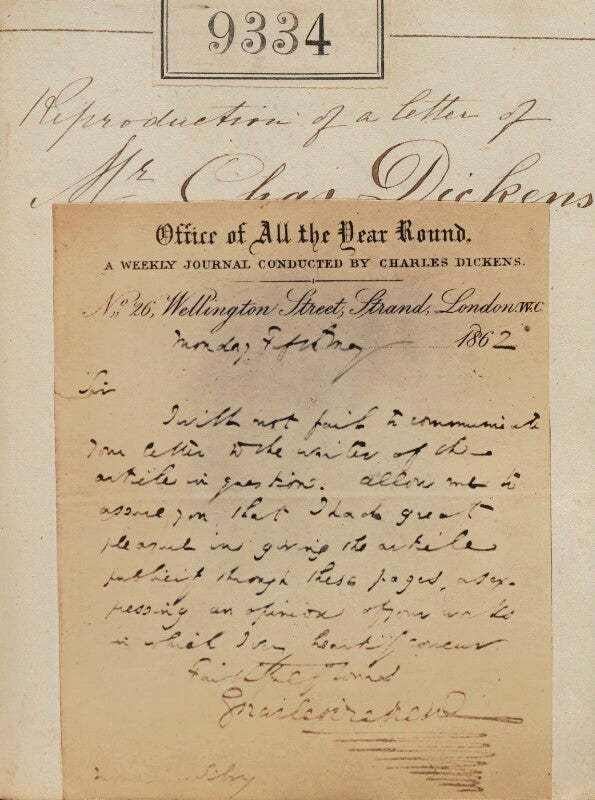 9334
Reproduction of a letter of
Mr Chas Dickens
Office of All the Year Round,
A WEEKLY JOURNAL CONDUCTED BY CHARLES DICKENS.
No. 26, Wellington Street, Strand, London. W.C
Monday Fifth May 1862
Sir
I will not fail to communicate
your letter to the writer of the
article in question. Allow me to
assure you that I had great
pleasure in giving the article
publicity through these pages, as ex-
pressing an opinion of your works
in which I very heartily concur
Faithfully Yours
Charles Dickens
Silvy